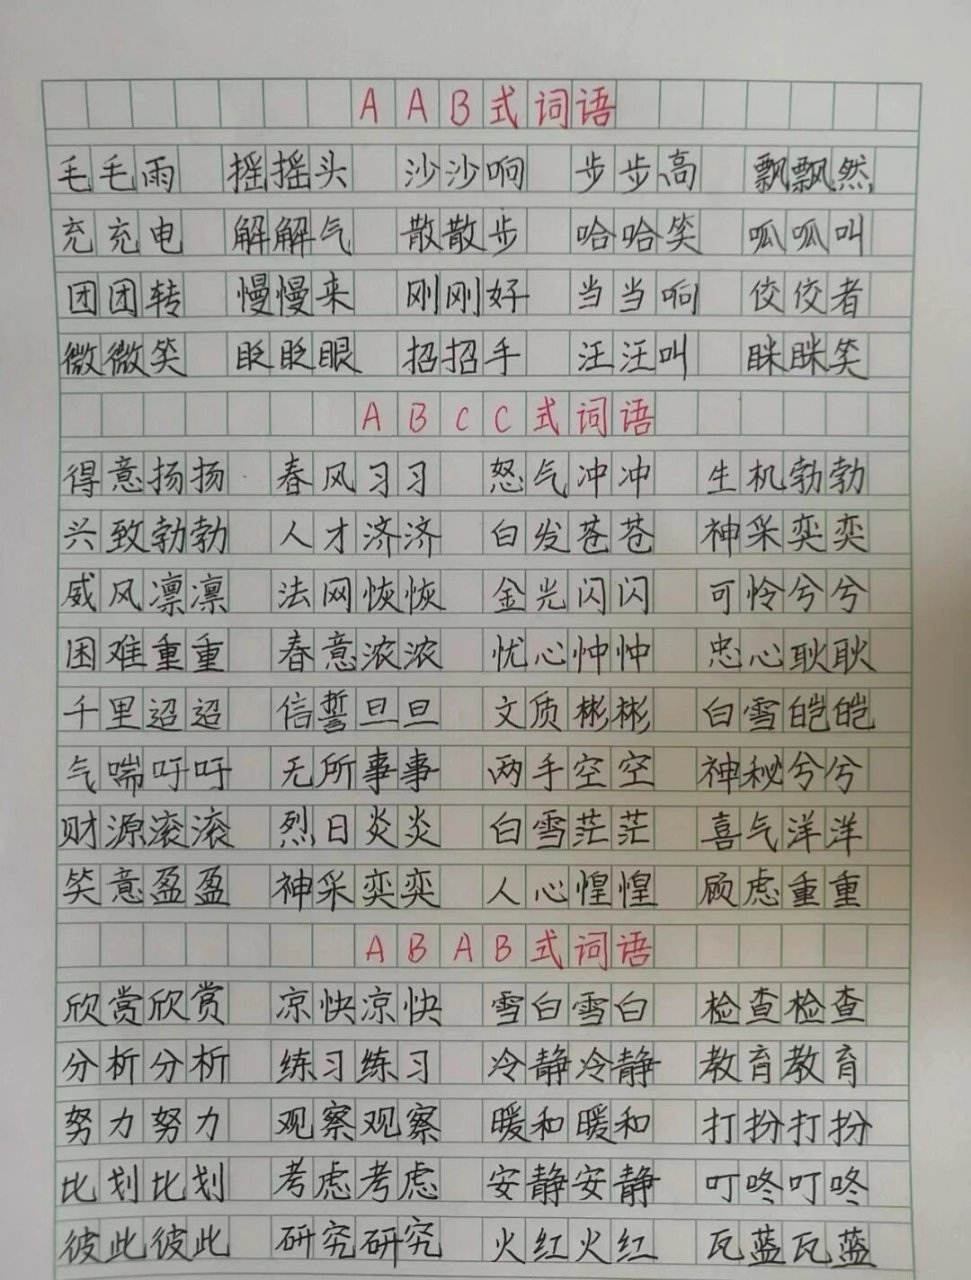 AAB式词语
毛毛雨 摇摇头 沙沙响 步步高 飘飘然
充充电 解解气 散散步 哈哈笑 呱呱叫
团团转 慢慢来 刚刚好 当当响 佼佼者
微微笑 眨眨眼 招招手 汪汪叫 眯眯笑
ABCC式词语
得意扬扬 春风习习 怒气冲冲 生机勃勃
兴致勃勃 人才济济 白发苍苍 神采奕奕
威风凛凛 法网恢恢 金光闪闪 可怜兮兮
困难重重 春意浓浓 忧心忡忡 忠心耿耿
千里迢迢 信誓旦旦 文质彬彬 白雪皑皑
气喘吁吁 无所事事 两手空空 神秘兮兮
财源滚滚 烈日炎炎 白雪茫茫 喜气洋洋
笑意盈盈 神采奕奕 人心惶惶 顾虑重重
ABAB式词语
欣赏欣赏 凉快凉快 雪白雪白 检查检查
分析分析 练习练习 冷静冷静 教育教育
努力努力 观察观察 暖和暖和 打扮打扮
比划比划 考虑考虑 安静安静 叮咚叮咚
彼此彼此 研究研究 火红火红 瓦蓝瓦蓝